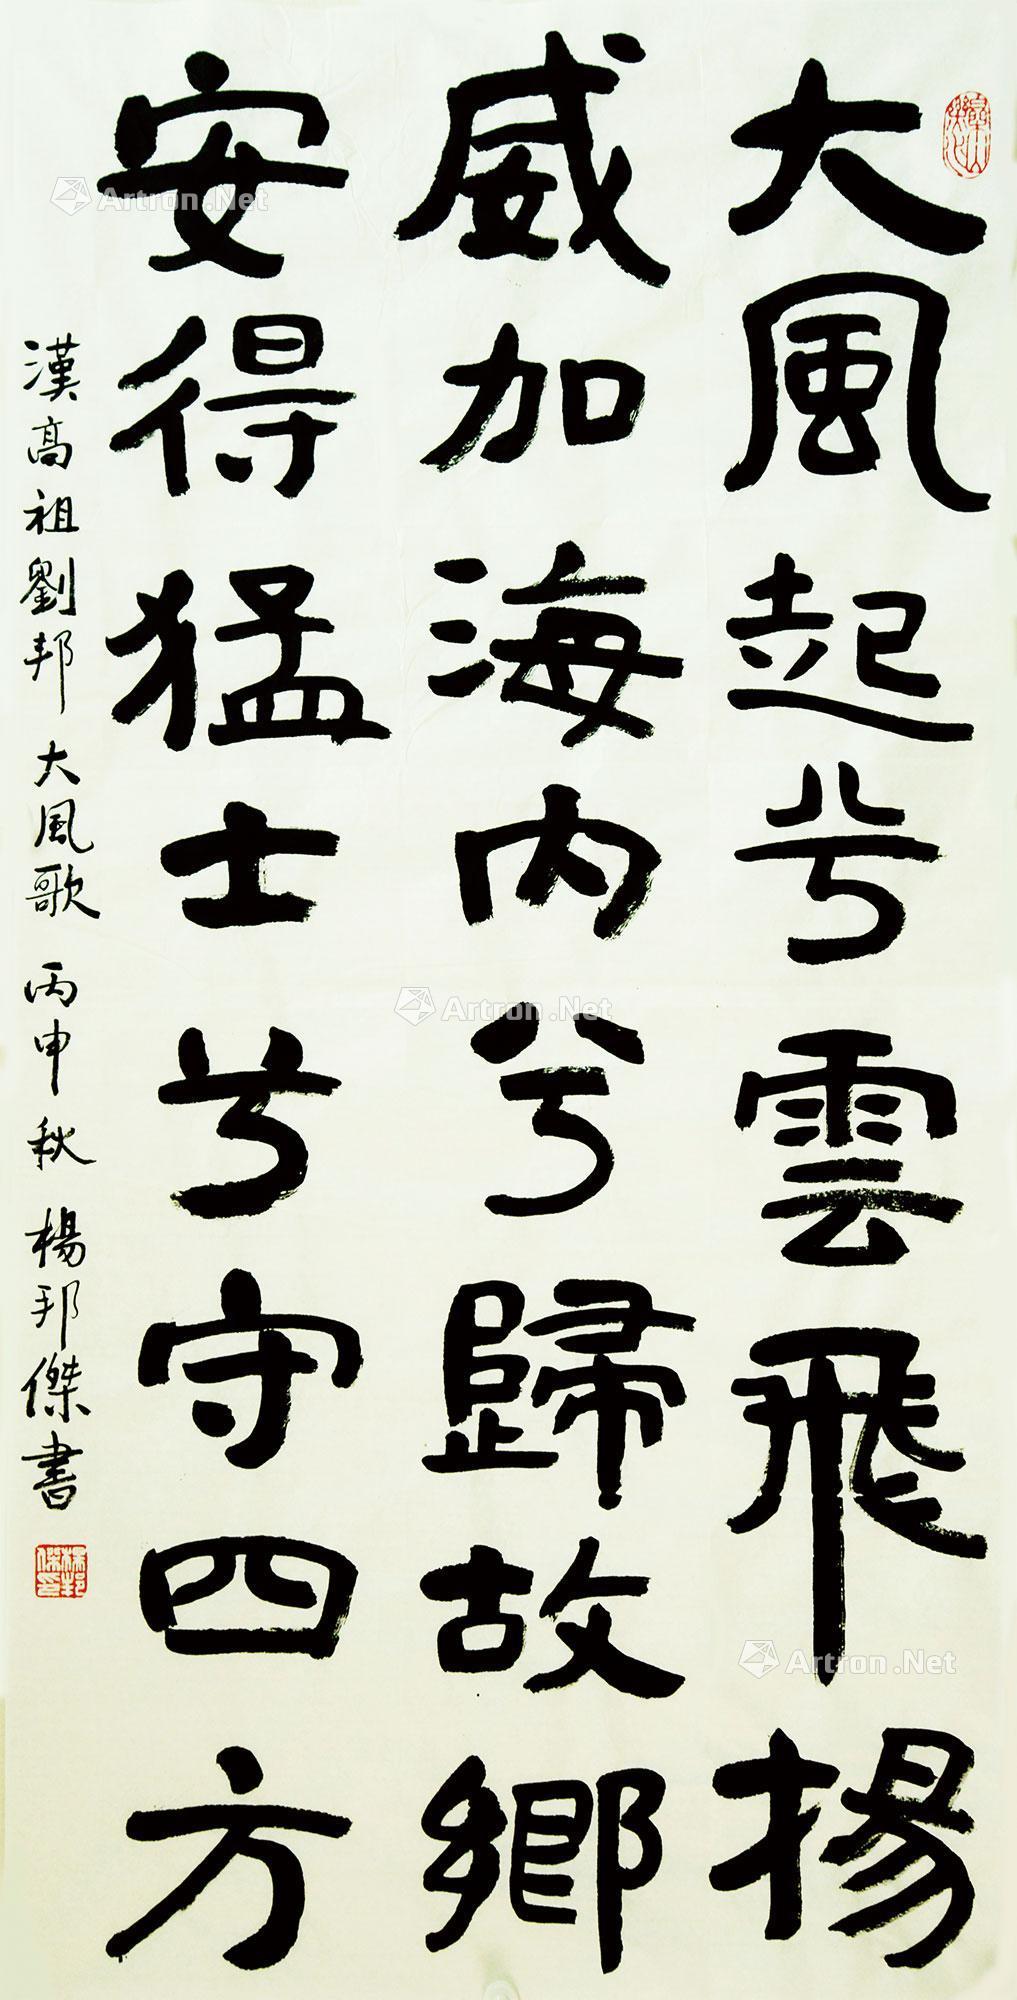 大風起兮雲飛揚
威加海内兮歸故鄉
安得猛士兮守四方
漢高祖劉邦 大風歌 丙申秋 楊邦傑書
楊邦傑印
Artron.Net
Artron.Net
Artron.Net